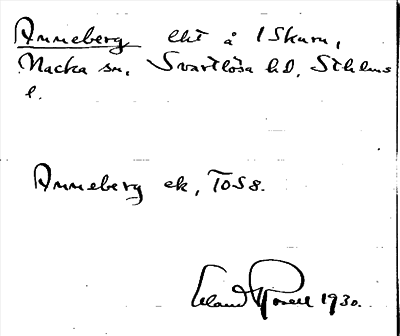 Anneberg lht å 1 Skuru,
Nacka sn, Svartlösa hd, Sthlms
l.
Anneberg ek, TOS8.
Erland Rosell 1930.